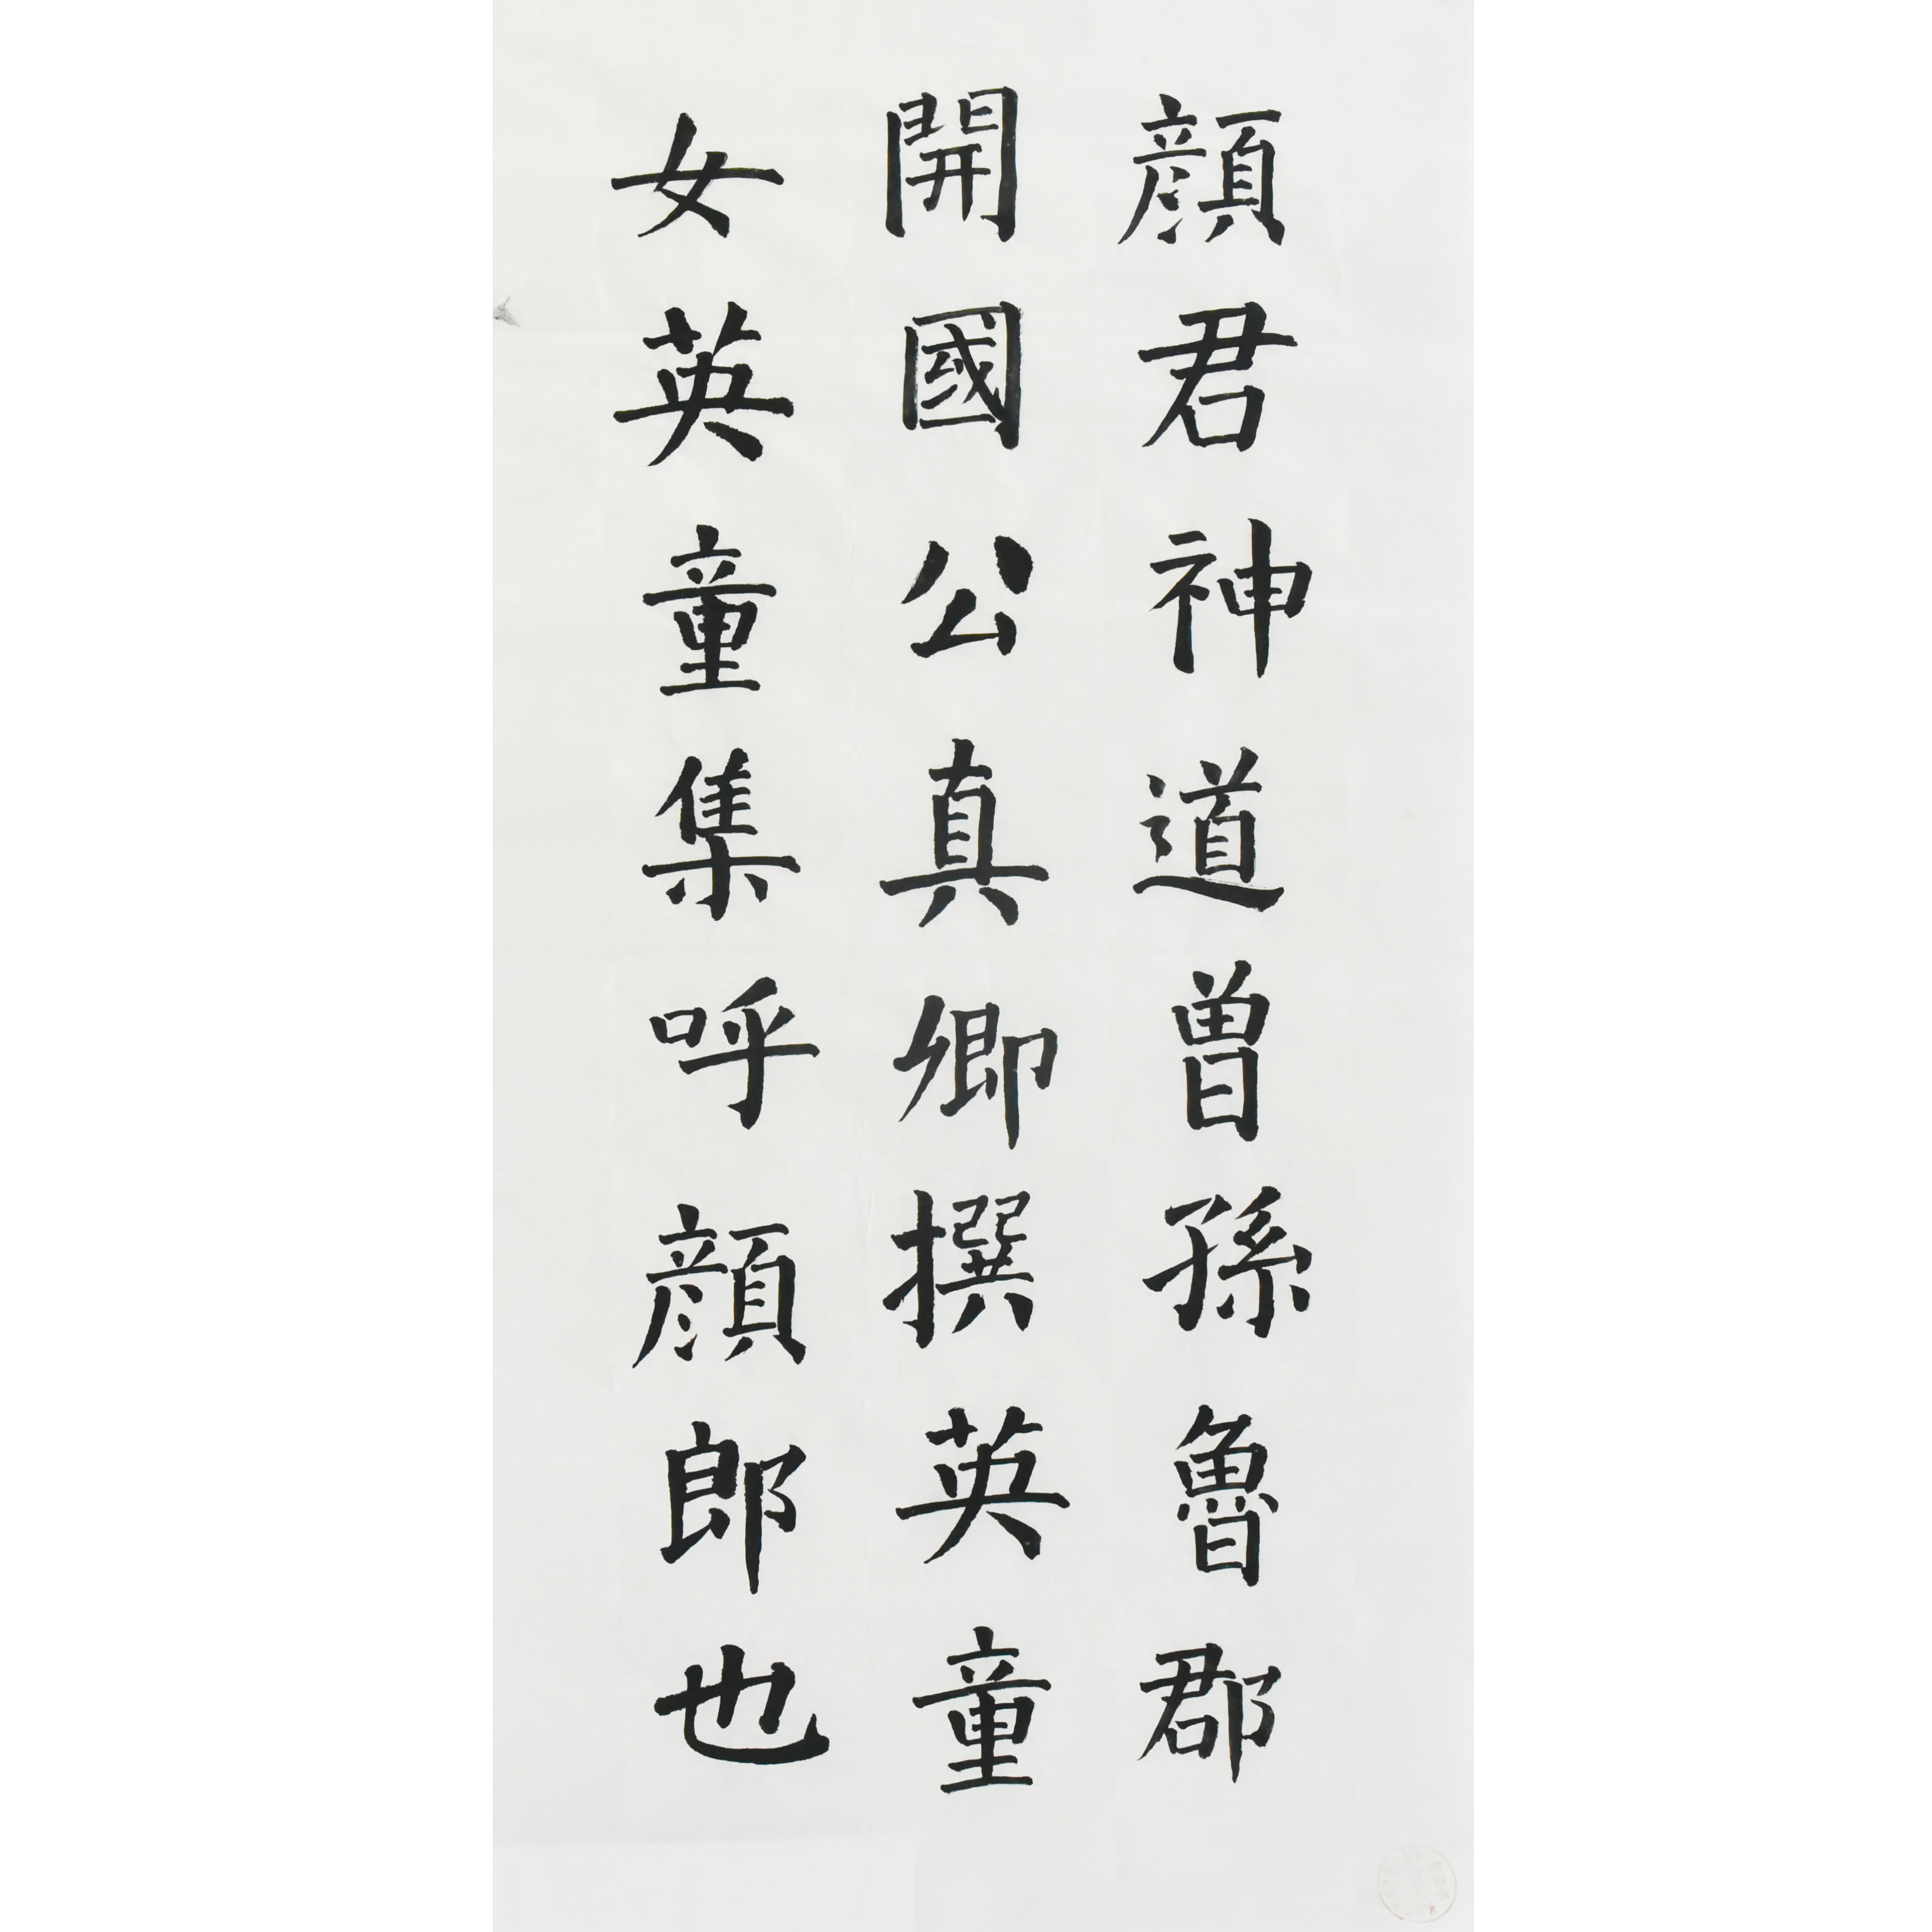 顔君神道曽孫魯郡
開國公真卿撰英童
女英童集呼顔郎也